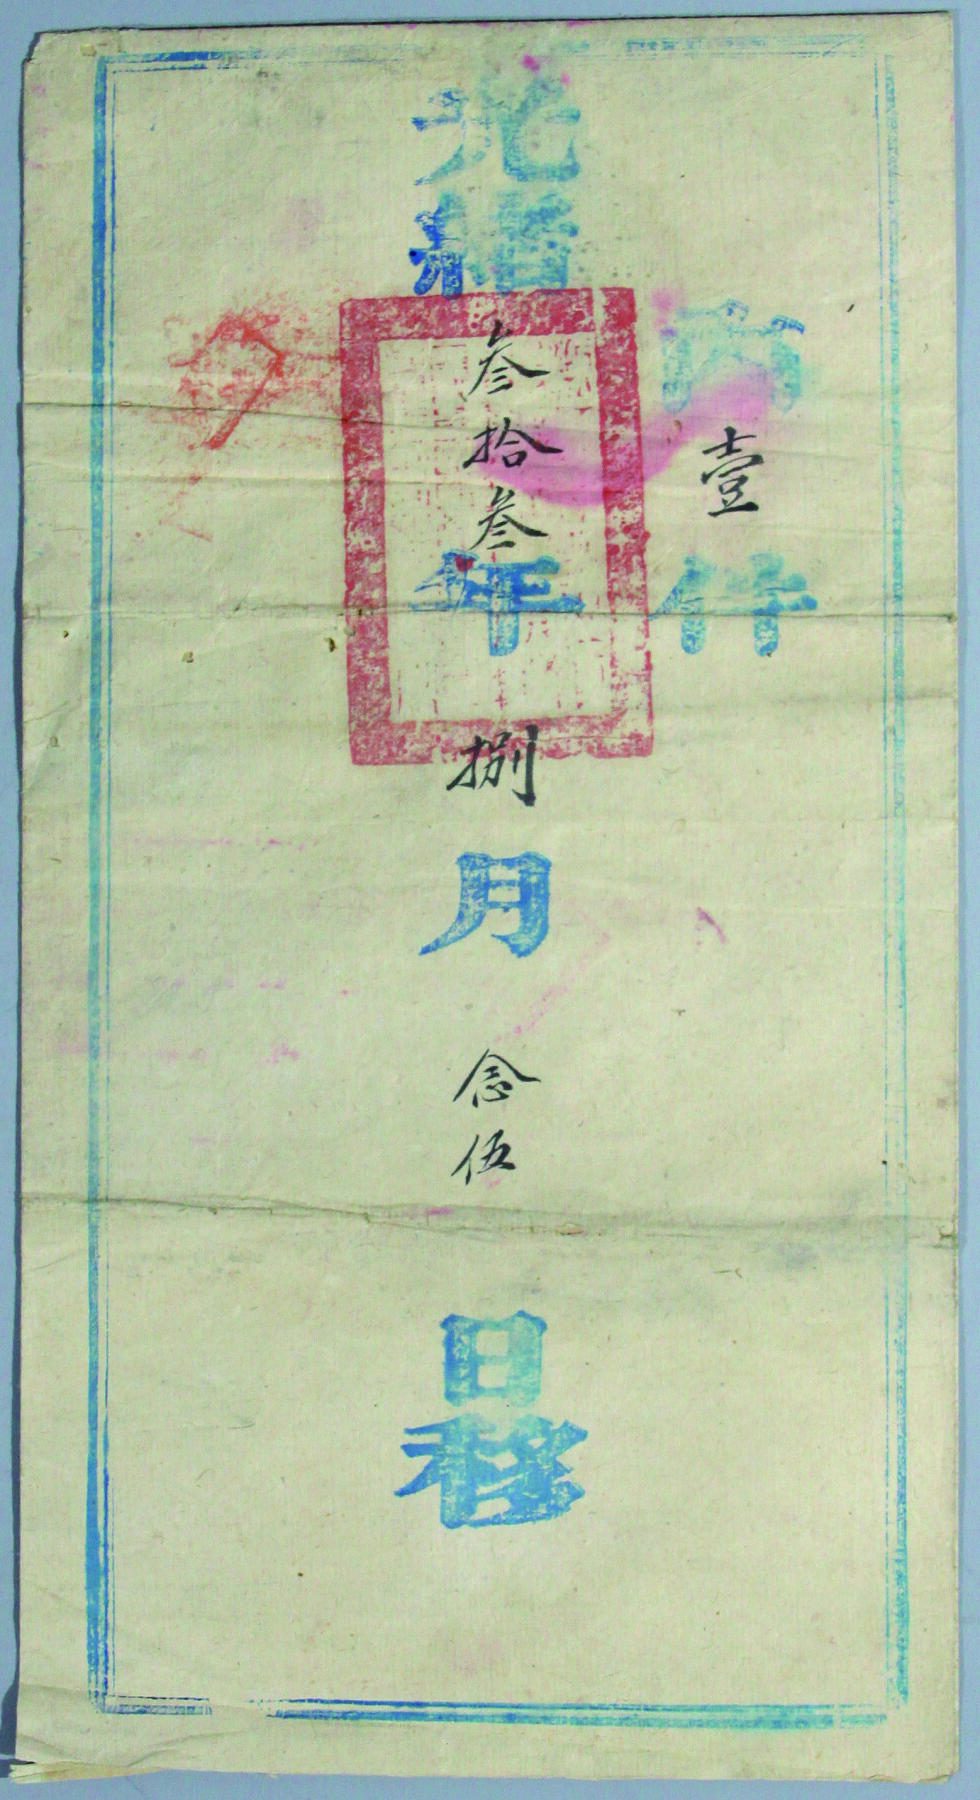 內壹件
光緒叁拾叁年捌月念伍日移